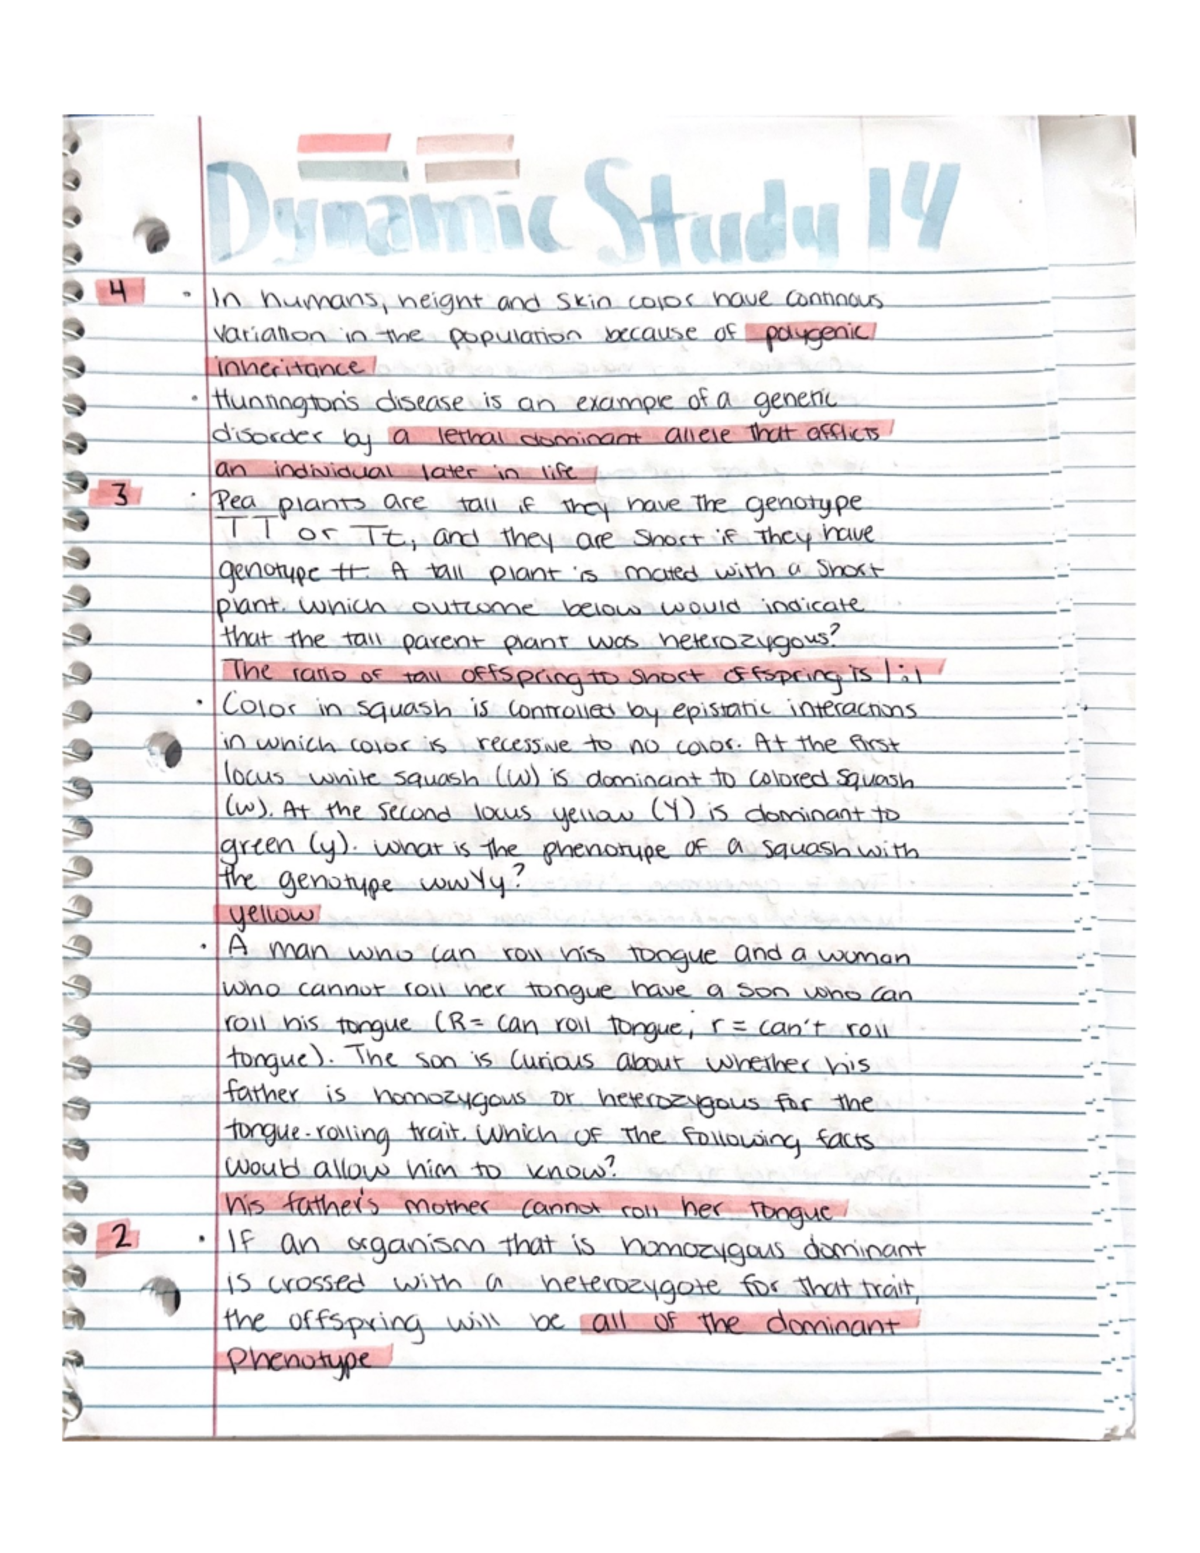 Dynamic Study 14
4 · In humans, height and skin color have continous
variation in the population because of polygenic
inheritance
· Hunnington's disease is an example of a genetic
disorder by a lethal dominant allele that afflicts
an individual later in life
3 · Pea plants are tall if they have the genotype
TT or Tt, and they are short if they have
genotype tt. A tall plant is mated with a short
plant. which outcome below would indicate
that the tall parent plant was heterozygous?
The ratio of tall offspring to short offspring is 1:1
· Color in squash is controlled by epistatic interactions
in which color is recessive to no color. At the first
locus white squash (W) is dominant to colored squash
(w). At the second locus yellow (Y) is dominant to
green (y). what is the phenotype of a squash with
the genotype wwYy?
yellow
· A man who can roll his tongue and a woman
who cannot roll her tongue have a son who can
roll his tongue (R= can roll tongue; r = can't roll
tongue). The son is curious about whether his
father is homozygous or heterozygous for the
tongue-rolling trait. Which of the following facts
would allow him to know?
his father's mother cannot roll her tongue
2 · If an organism that is homozygous dominant
is crossed with a heterozygote for that trait,
the offspring will be all of the dominant
Phenotype